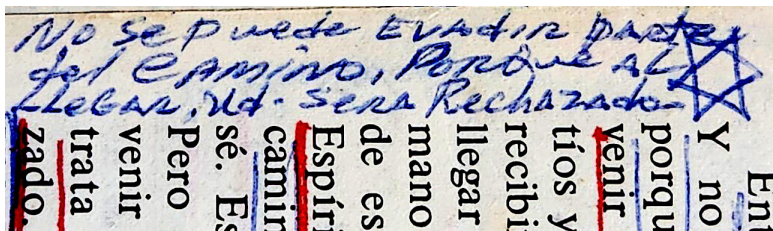 No se puede Evadir parte
del CAMINO, PORQUE AL
LLEGAR, Ud. SERA Rechazado.
Ent
Y no
porqu
venir
tíos y
recibi
llegar
mano
de es
Espíri
camin
sé. Es
Pero
venir
trata
zado.